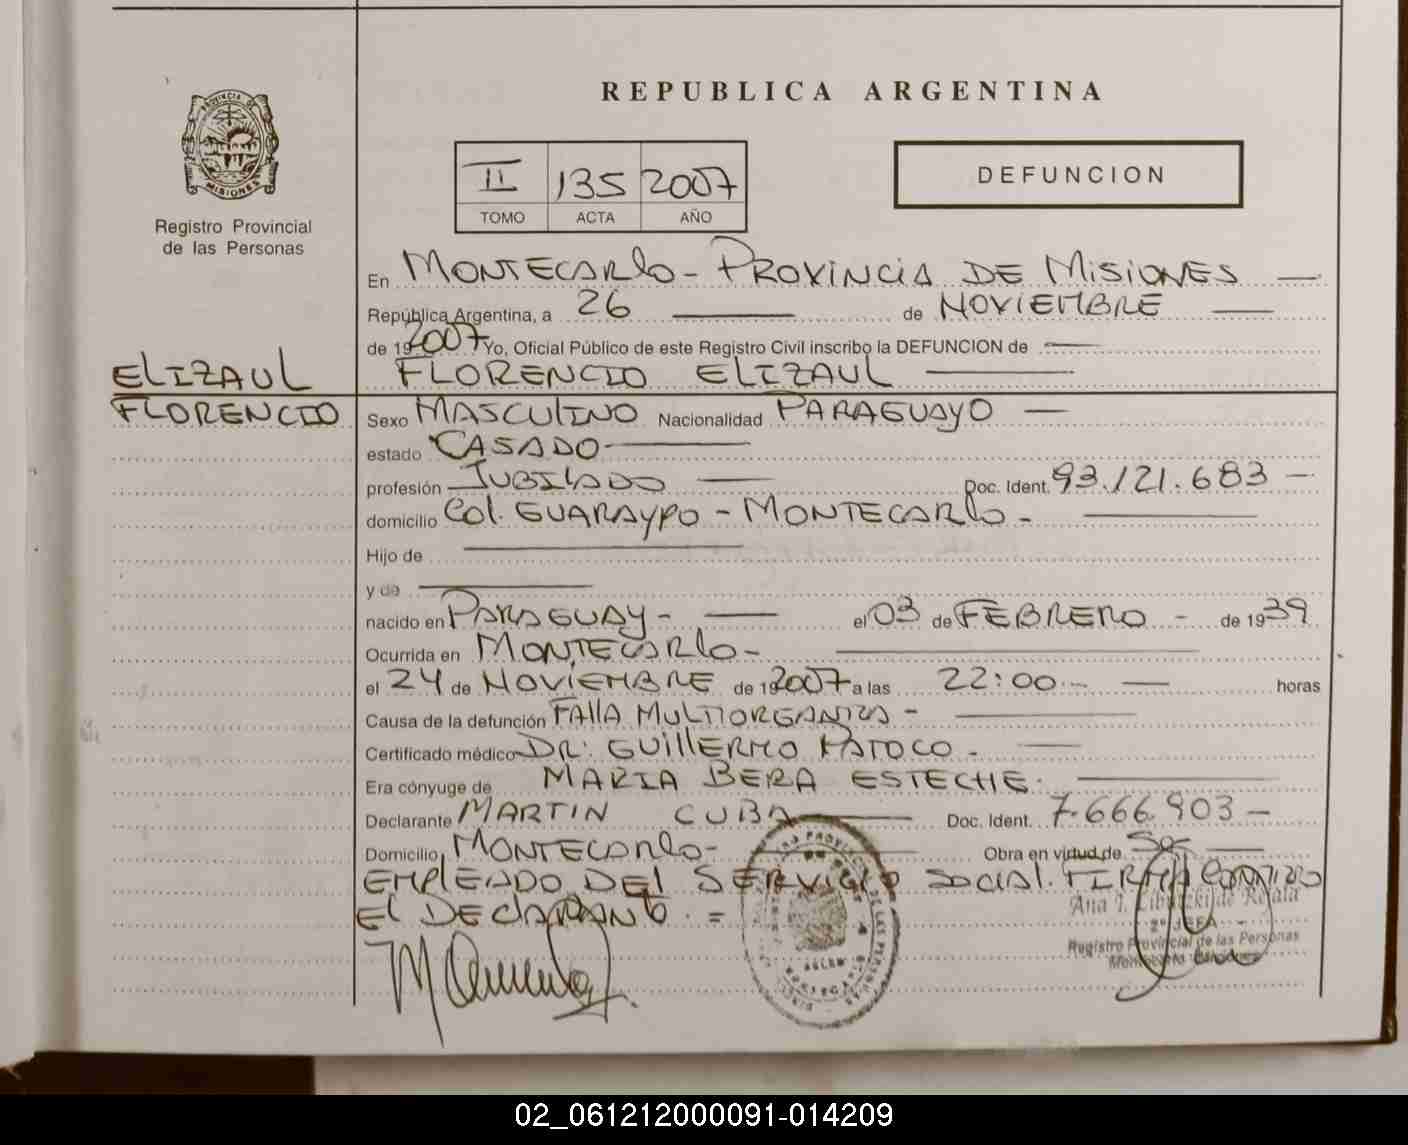 REPUBLICA ARGENTINA
PROVINCIA DE MISIONES
Registro Provincial
de las Personas
II 135 2007
TOMO ACTA AÑO
DEFUNCION
En MONTECARLO - PROVINCIA DE MISIONES —
República Argentina, a 26 — de NOVIEMBRE —
de 192007 Yo, Oficial Público de este Registro Civil inscribo la DEFUNCION de —
ELIZAUL
FLORENCIO
FLORENCIO ELIZAUL —
Sexo MASCULINO Nacionalidad PARAGUAYO —
estado CASADO —
profesión JUBILADO — Doc. Ident. 93.121.683 -
domicilio Col. GUARAYPO - MONTECARLO - —
Hijo de —
y de —
nacido en PARAGUAY - — el 03 de FEBRERO - de 1939
Ocurrida en MONTECARLO - —
el 24 de NOVIEMBRE de 192007 a las 22:00 - — horas
Causa de la defunción FALLA MULTIORGANICA - —
Certificado médico DR: GUILLERMO PATOCO - —
Era cónyuge de MARIA BERA ESTECHE. —
Declarante MARTIN CUBA — Doc. Ident. 7.666.903 -
Domicilio MONTECARLO - — Obra en virtud de SER —
EMPLEADO DEL SERVICIO SOCIAL. FIRMA CONMIGO
EL DECLARANTE. =
2º JEFA
Registro Provincial de las Personas
Montecarlo - Misiones
02_061212000091-014209